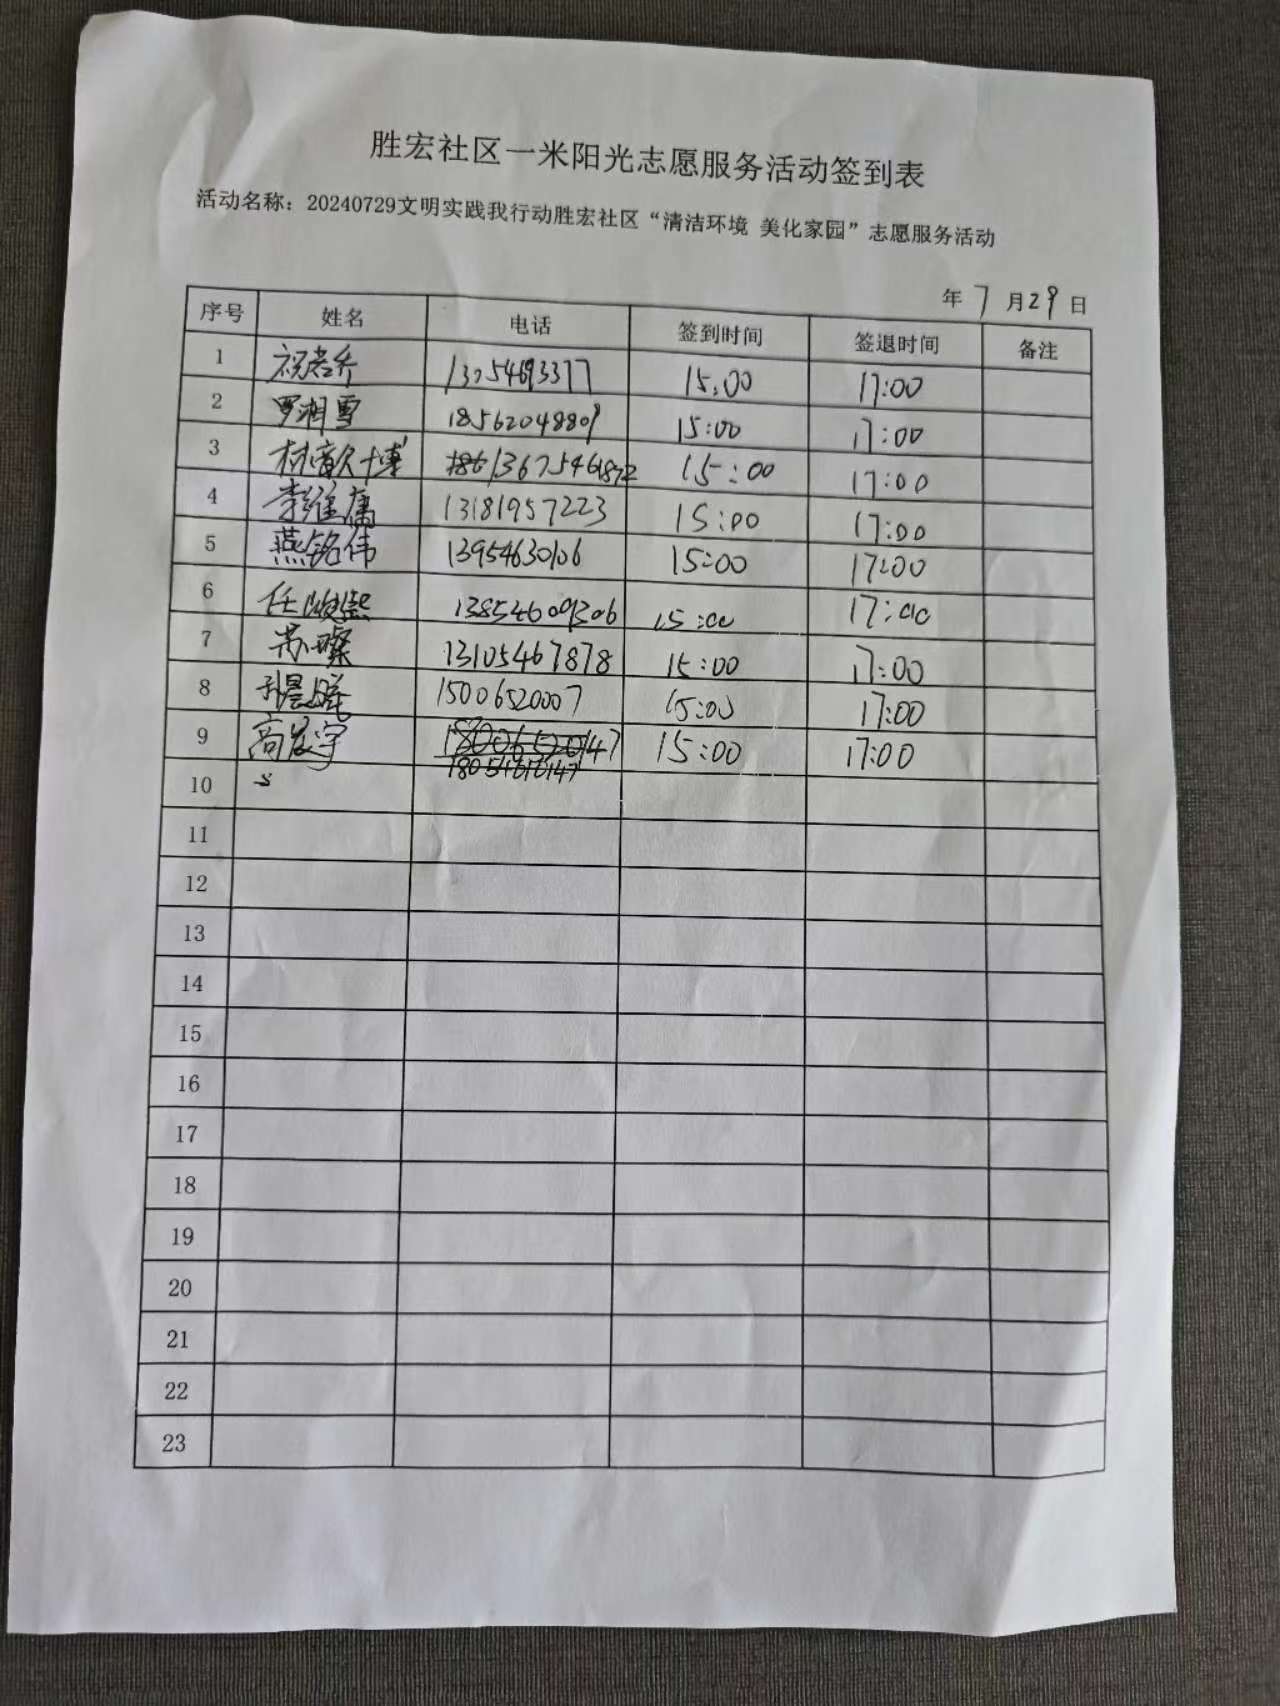 胜宏社区一米阳光志愿服务活动签到表
活动名称：20240729文明实践我行动胜宏社区“清洁环境 美化家园”志愿服务活动
年 7 月 29 日
序号 姓名 电话 签到时间 签退时间 备注
1 祝若乔 15:00 17:00
2 罗湘雪 18562048809 15:00 17:00
3 15:00 17:00
4 13181957223 15:00 17:00
5 燕铭伟 13954630106 15:00 17:00
6 13854609306 15:00 17:00
7 苏璨 13105467878 15:00 17:00
8 15006520007 15:00 17:00
9 15:00 17:00
10
11
12
13
14
15
16
17
18
19
20
21
22
23